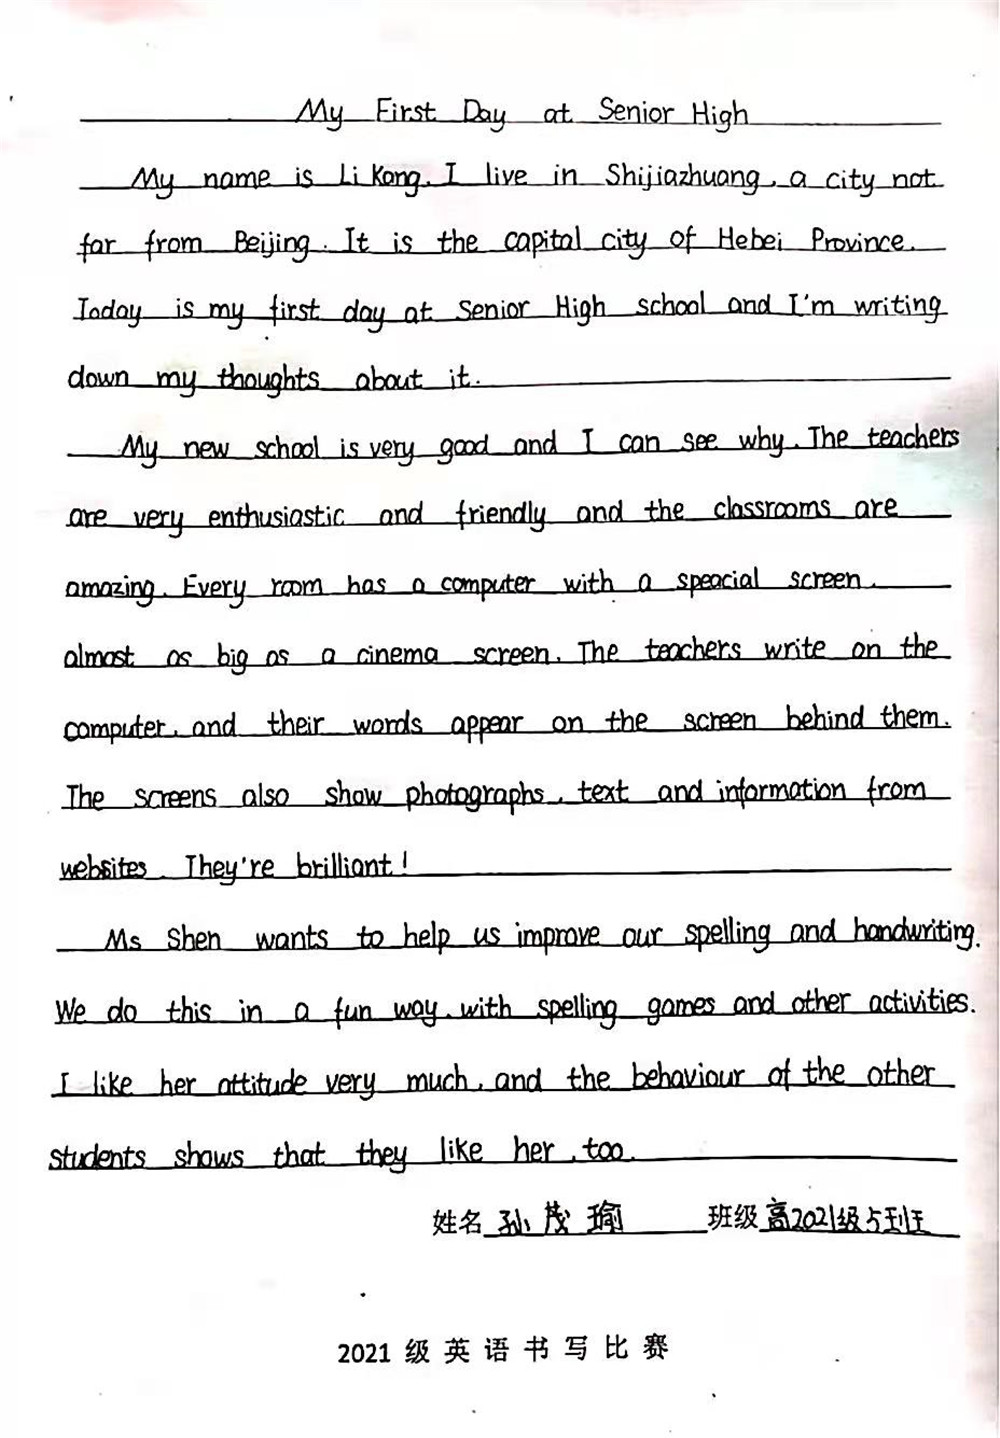 My First Day at Senior High
My name is Li Kang. I live in Shijiazhuang, a city not
far from Beijing. It is the capital city of Hebei Province.
Today is my first day at Senior High school and I'm writing
down my thoughts about it.
My new school is very good and I can see why. The teachers
are very enthusiastic and friendly and the classrooms are
amazing. Every room has a computer with a speacial screen,
almost as big as a cinema screen. The teachers write on the
computer, and their words appear on the screen behind them.
The screens also show photographs, text and information from
websites. They're brilliant!
Ms Shen wants to help us improve our spelling and handwriting.
We do this in a fun way, with spelling games and other activities.
I like her attitude very much, and the behaviour of the other
students shows that they like her, too.
姓名 孙茂瑜 班级 高2021级5班
2021 级英语书写比赛